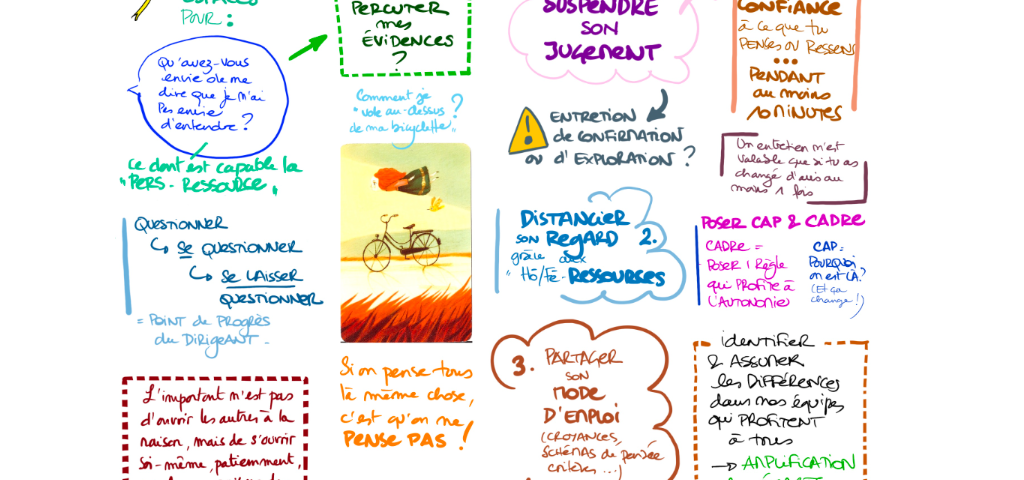 ESPACES
POUR :
Qu'avez-vous
envie de me
dire que je n'ai
pas envie
d'entendre ?
Ce dont est capable la
"PERS-RESSOURCE"
QUESTIONNER
SE QUESTIONNER
SE LAISSER
QUESTIONNER
= POINT de PROGRÈS
du DIRIGEANT -
L'important n'est pas
d'ouvrir les autres à la
raison, mais de s'ouvrir
soi-même, patiemment,
PERCUTER
mes
ÉVIDENCES
?
Comment je
"vole au-dessus
de ma bicyclette" ?
Si on pense tous
la même chose,
c'est qu'on ne
PENSE PAS !
SUSPENDRE
SON
JUGEMENT
ENTRETIEN
de CONFIRMATION
ou d'EXPLORATION ?
DISTANCIER
son REGARD 2.
grâce aux
"Hô/Fè-RESSOURCES
3. PARTAGER
SON
MODE
D'EMPLOI
(CROYANCES,
SCHÉMAS de pensée
critères ...)
CONFIANCE
à ce que tu
PENSES OU RESSENS
...
PENDANT
au moins
10 MINUTES
Un entretien n'est
valable que si tu as
changé d'avis au
moins 1 fois
POSER CAP & CADRE
CADRE =
POSER 1 Règle
qui PROFITE à
L'AUTONOMIE
CAP =
POURQUOI
on est LÀ ?
(Et ça
change !)
identifier
& ASSUMER
les DIFFÉRENCES
dans nos équipes
qui PROFITENT
à tous
→ AMPLIFICATION